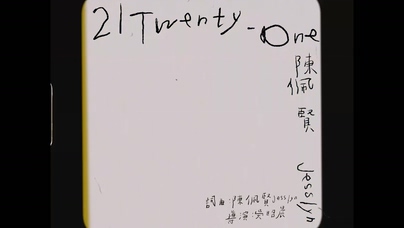 21 Twenty-One
陳佩賢
Jesslyn
詞曲:陳佩賢Jesslyn
導演:吳昭晨